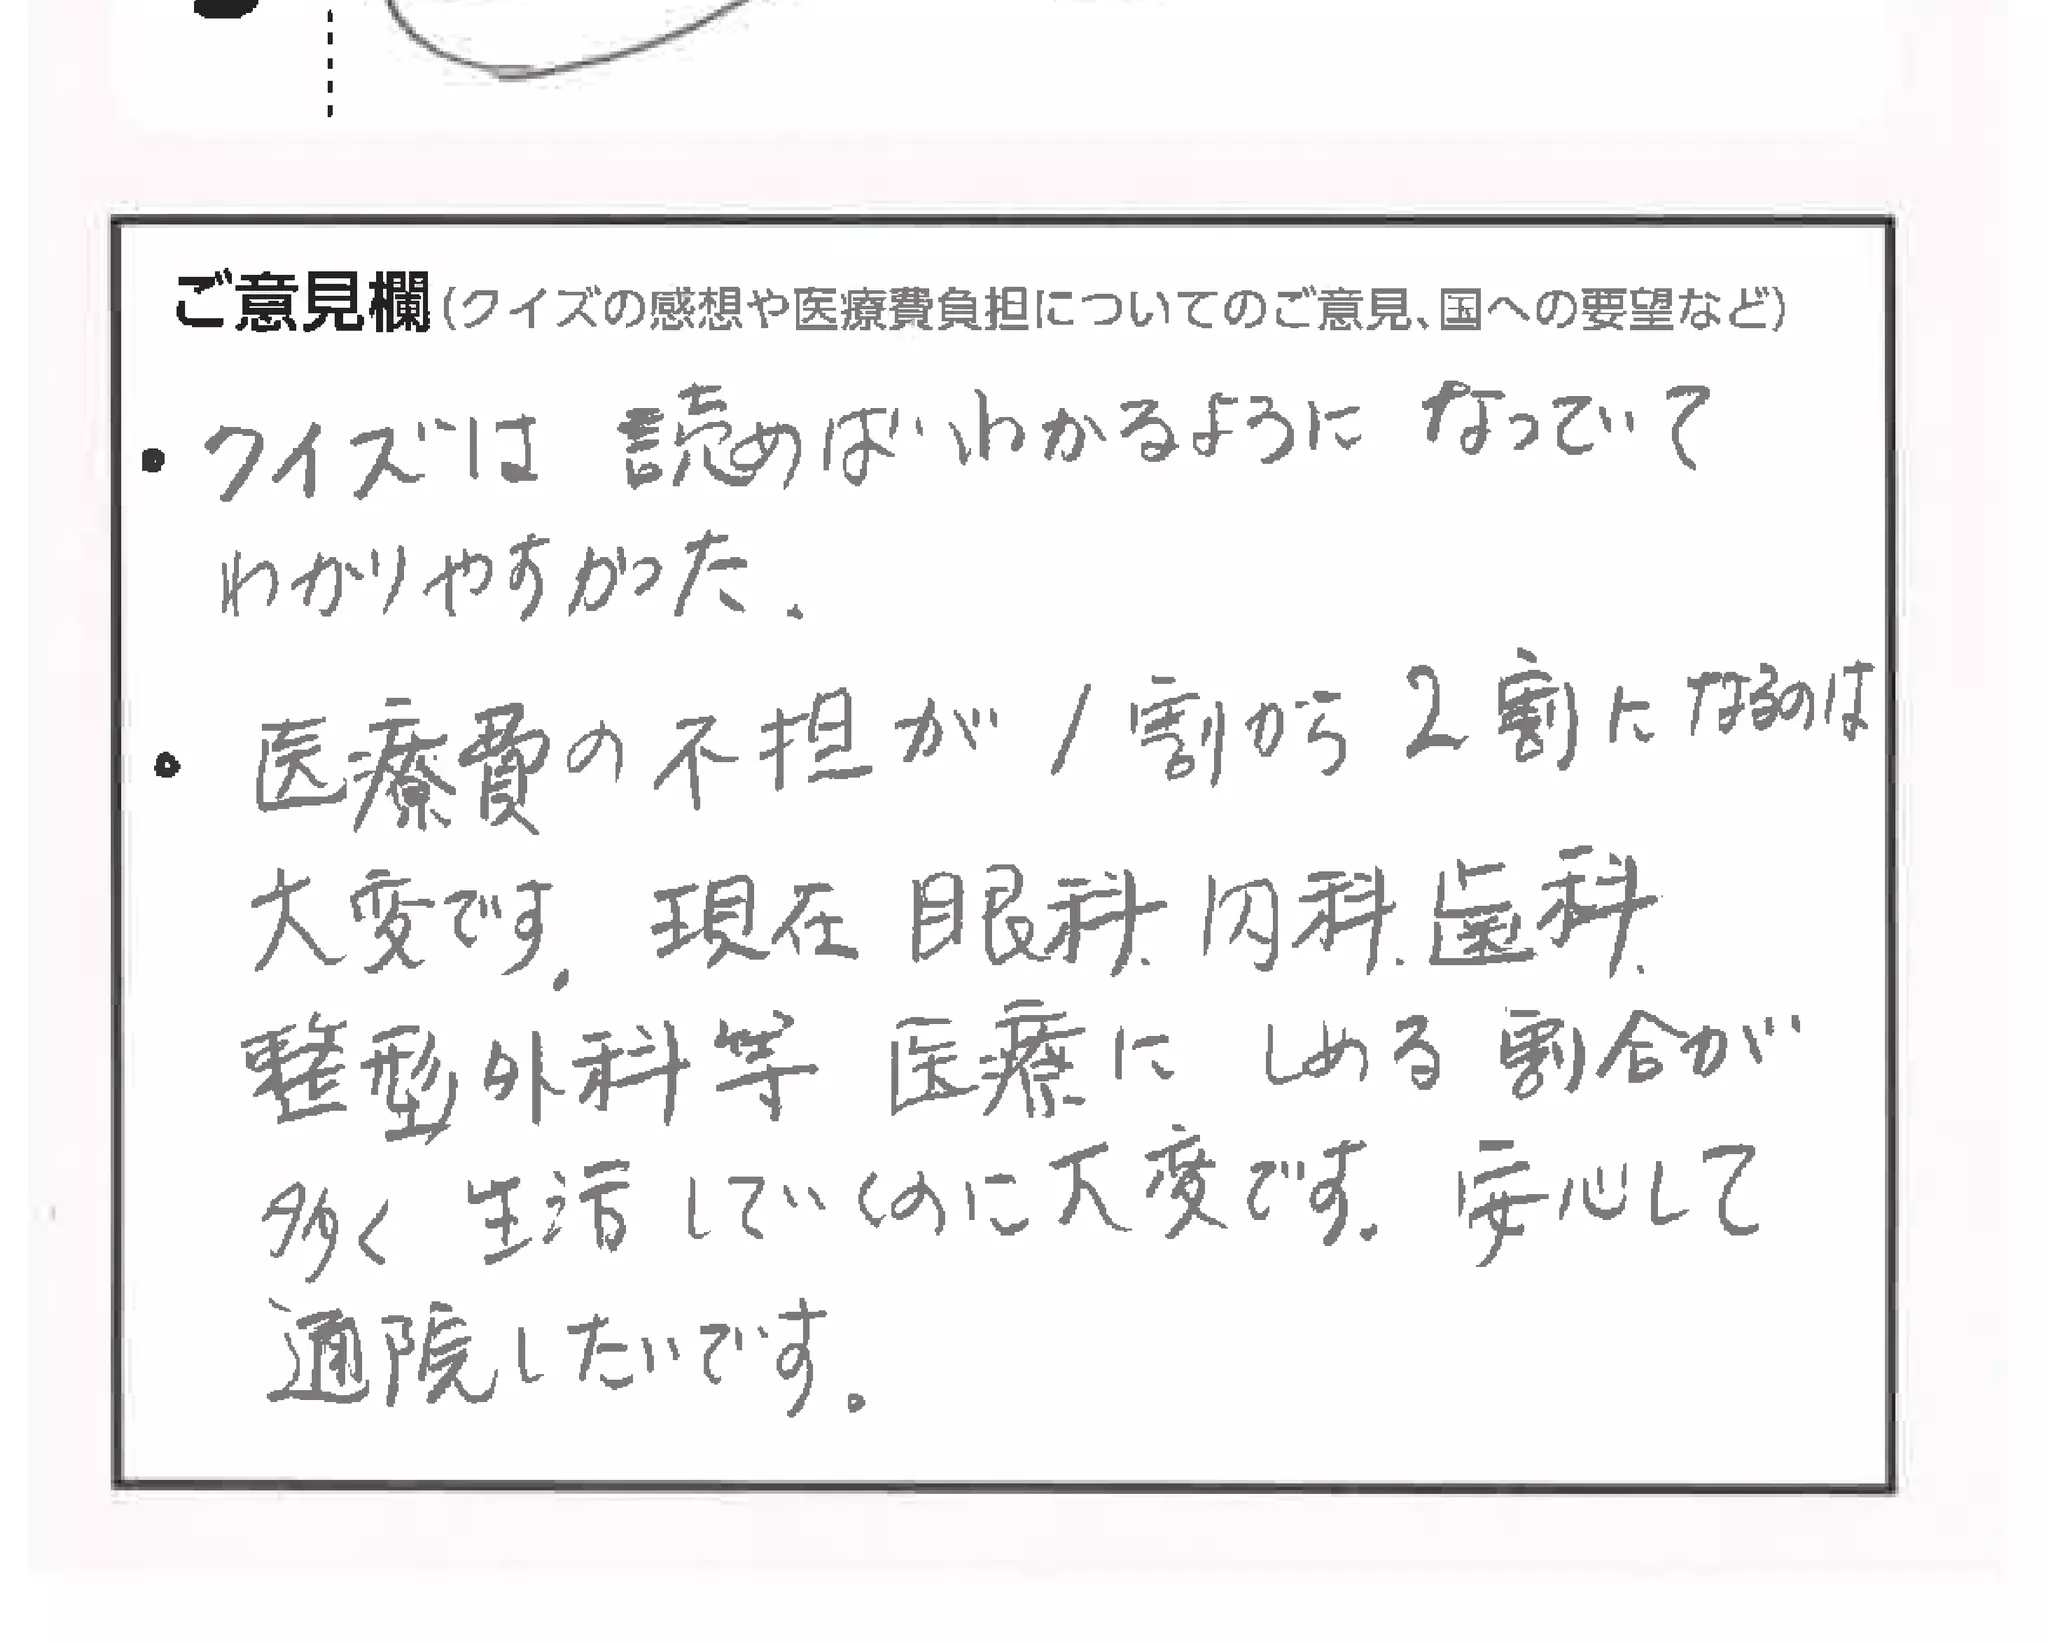 ご意見欄(クイズの感想や医療費負担についてのご意見、国への要望など)
・クイズは 読めばわかるように なっていて
わかりやすかった.
・医療費の不担が1割から2割になるのは
大変です. 現在 眼科.内科.歯科.
整型外科等 医療に しめる 割合が
多く 生活 していくのに大変です. 安心して
通院したいです。